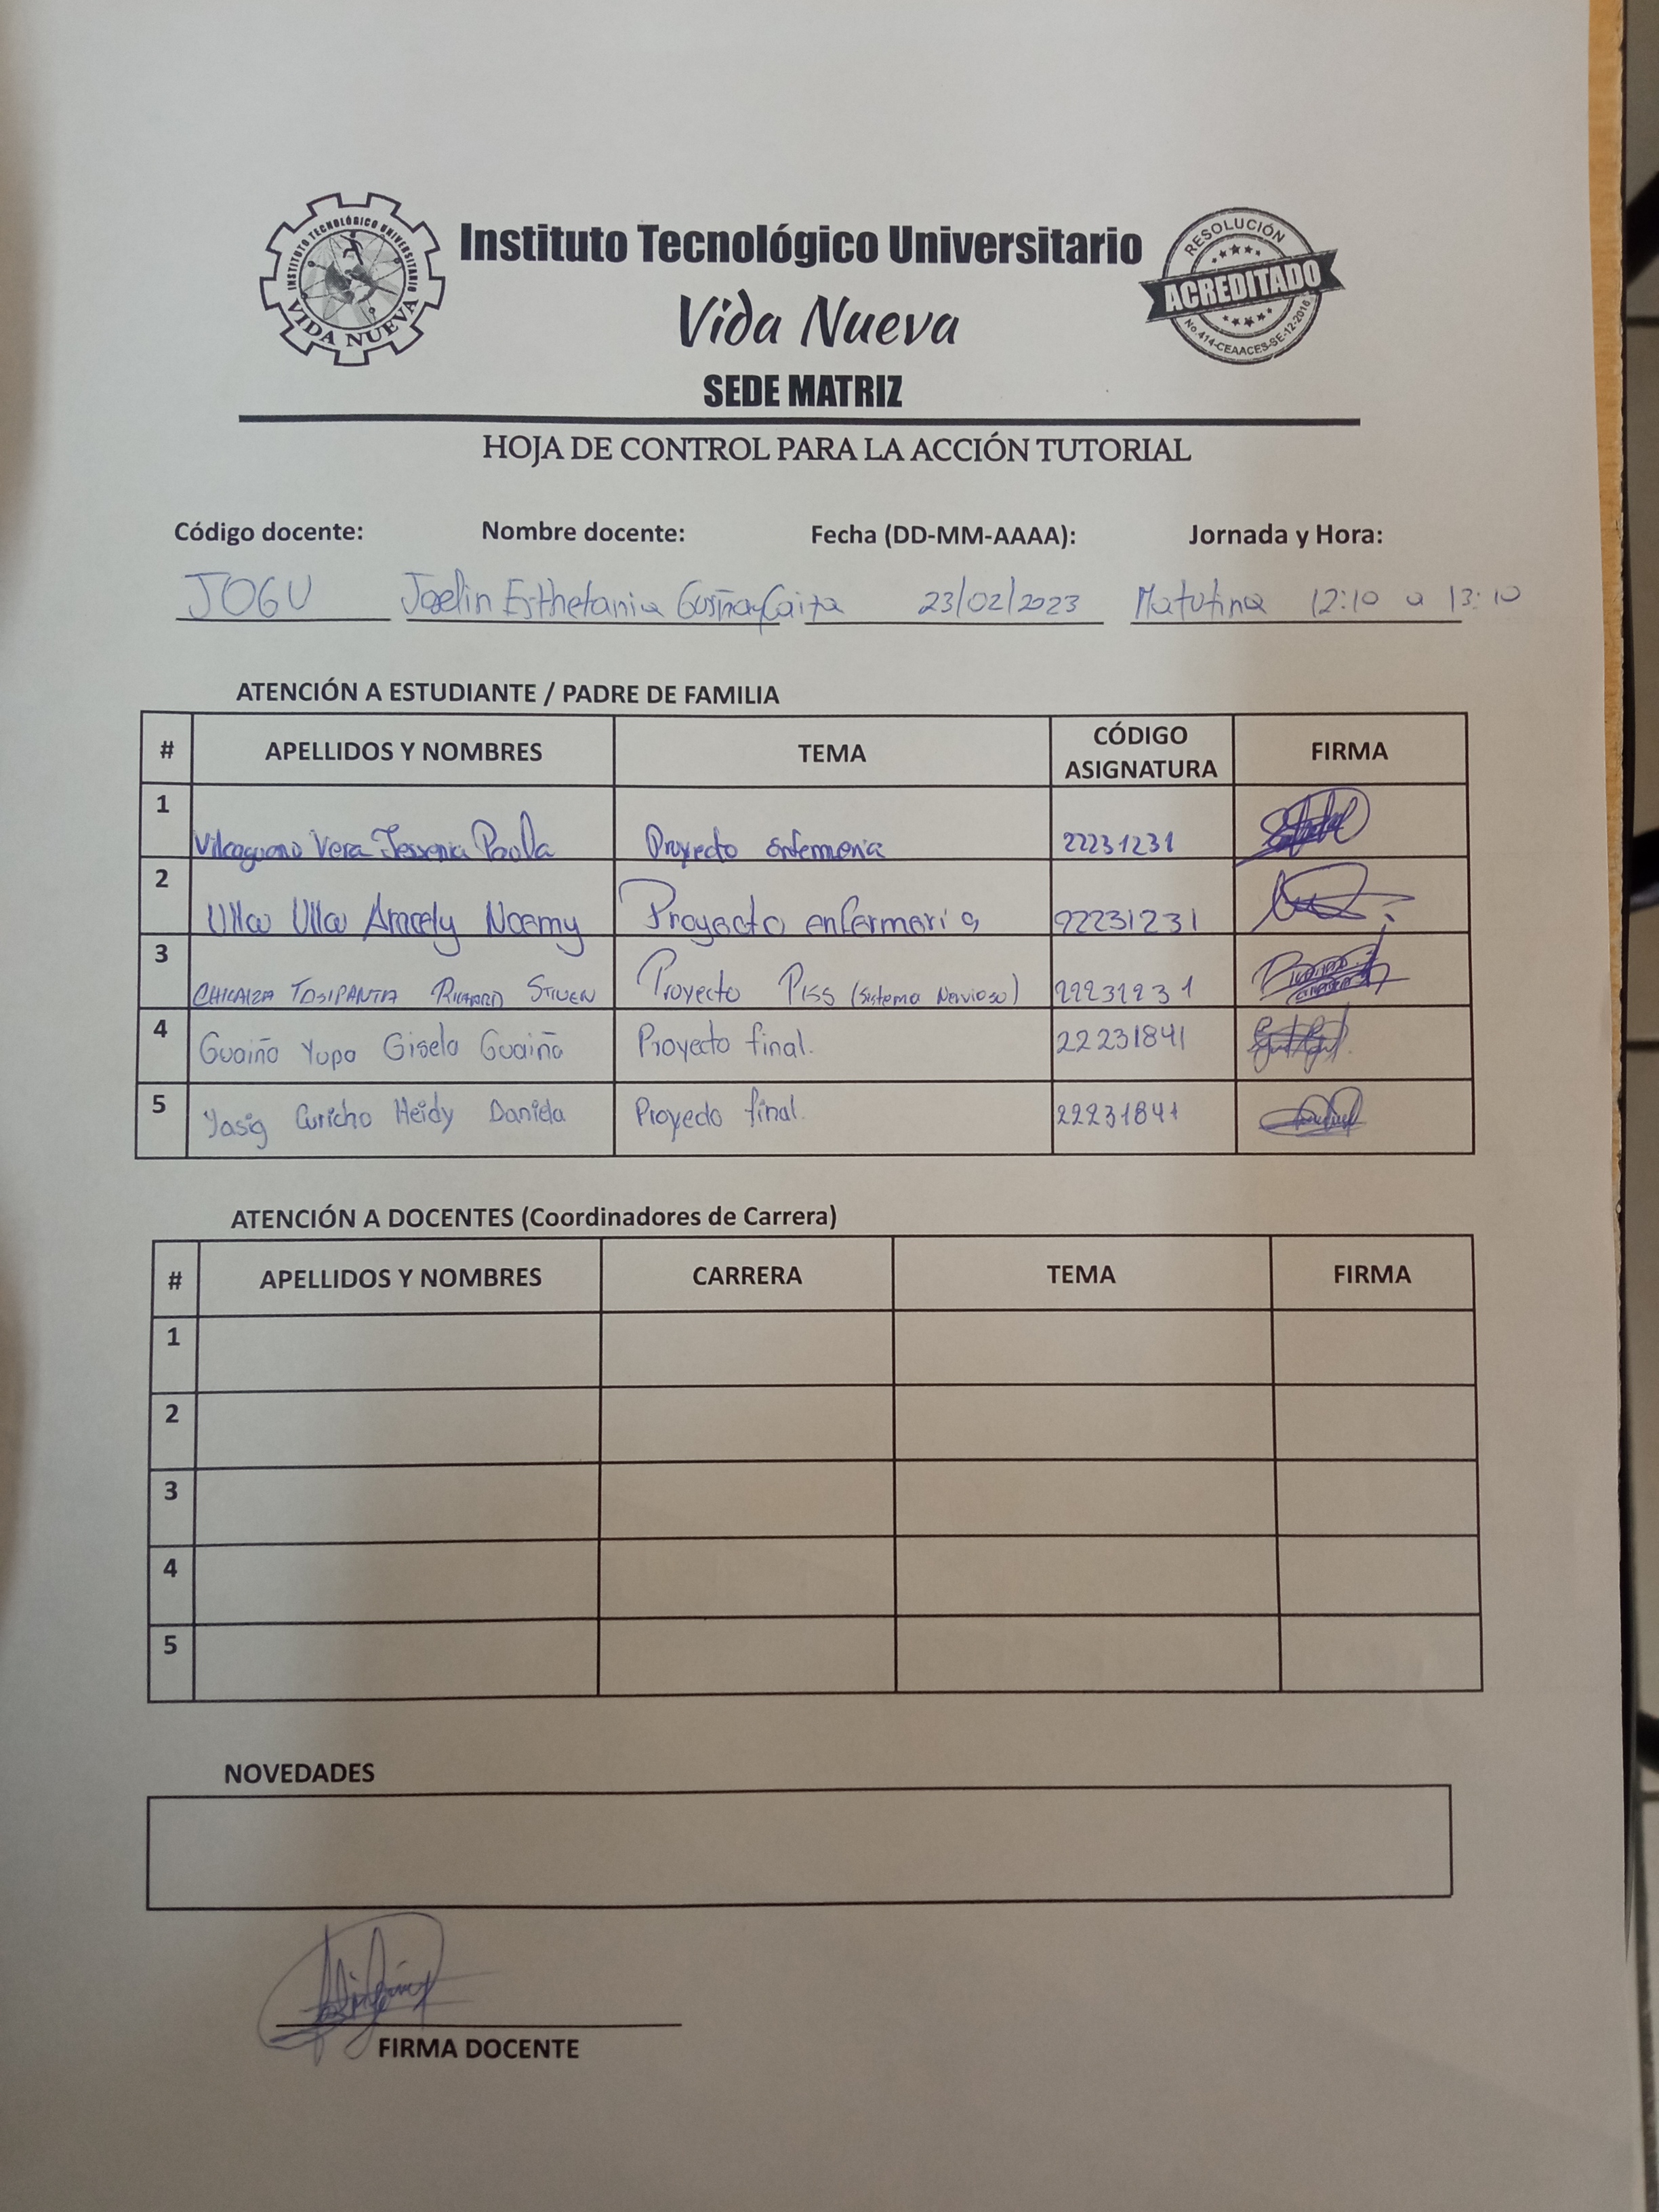 INSTITUTO TECNOLÓGICO UNIVERSITARIO
VIDA NUEVA
Instituto Tecnológico Universitario
Vida Nueva
SEDE MATRIZ
RESOLUCIÓN
ACREDITADO
No.414-CEAACES-SE-12-2016
HOJA DE CONTROL PARA LA ACCIÓN TUTORIAL
Código docente: Nombre docente: Fecha (DD-MM-AAAA): Jornada y Hora:
JOGU Joelin Esthefania 23/02/2023 Matutina 12:10 a 13:10
ATENCIÓN A ESTUDIANTE / PADRE DE FAMILIA
# APELLIDOS Y NOMBRES TEMA CÓDIGO ASIGNATURA FIRMA
1 Vilcaguano Vera Jessenia Paola Proyecto enfermeria 22231231
2 Ulloa Ulloa Aracely Noemy Proyecto enfermeria 22231231
3 CHICAIZA TOSIPANTA RICHARD STIVEN Proyecto PISS (Sistema Nervioso) 22231231
4 Guaiña Yupa Gisela Guaiña Proyecto final. 22231841
5 Yasig Curicho Heidy Daniela Proyecto final. 22231841
ATENCIÓN A DOCENTES (Coordinadores de Carrera)
# APELLIDOS Y NOMBRES CARRERA TEMA FIRMA
1
2
3
4
5
NOVEDADES
FIRMA DOCENTE